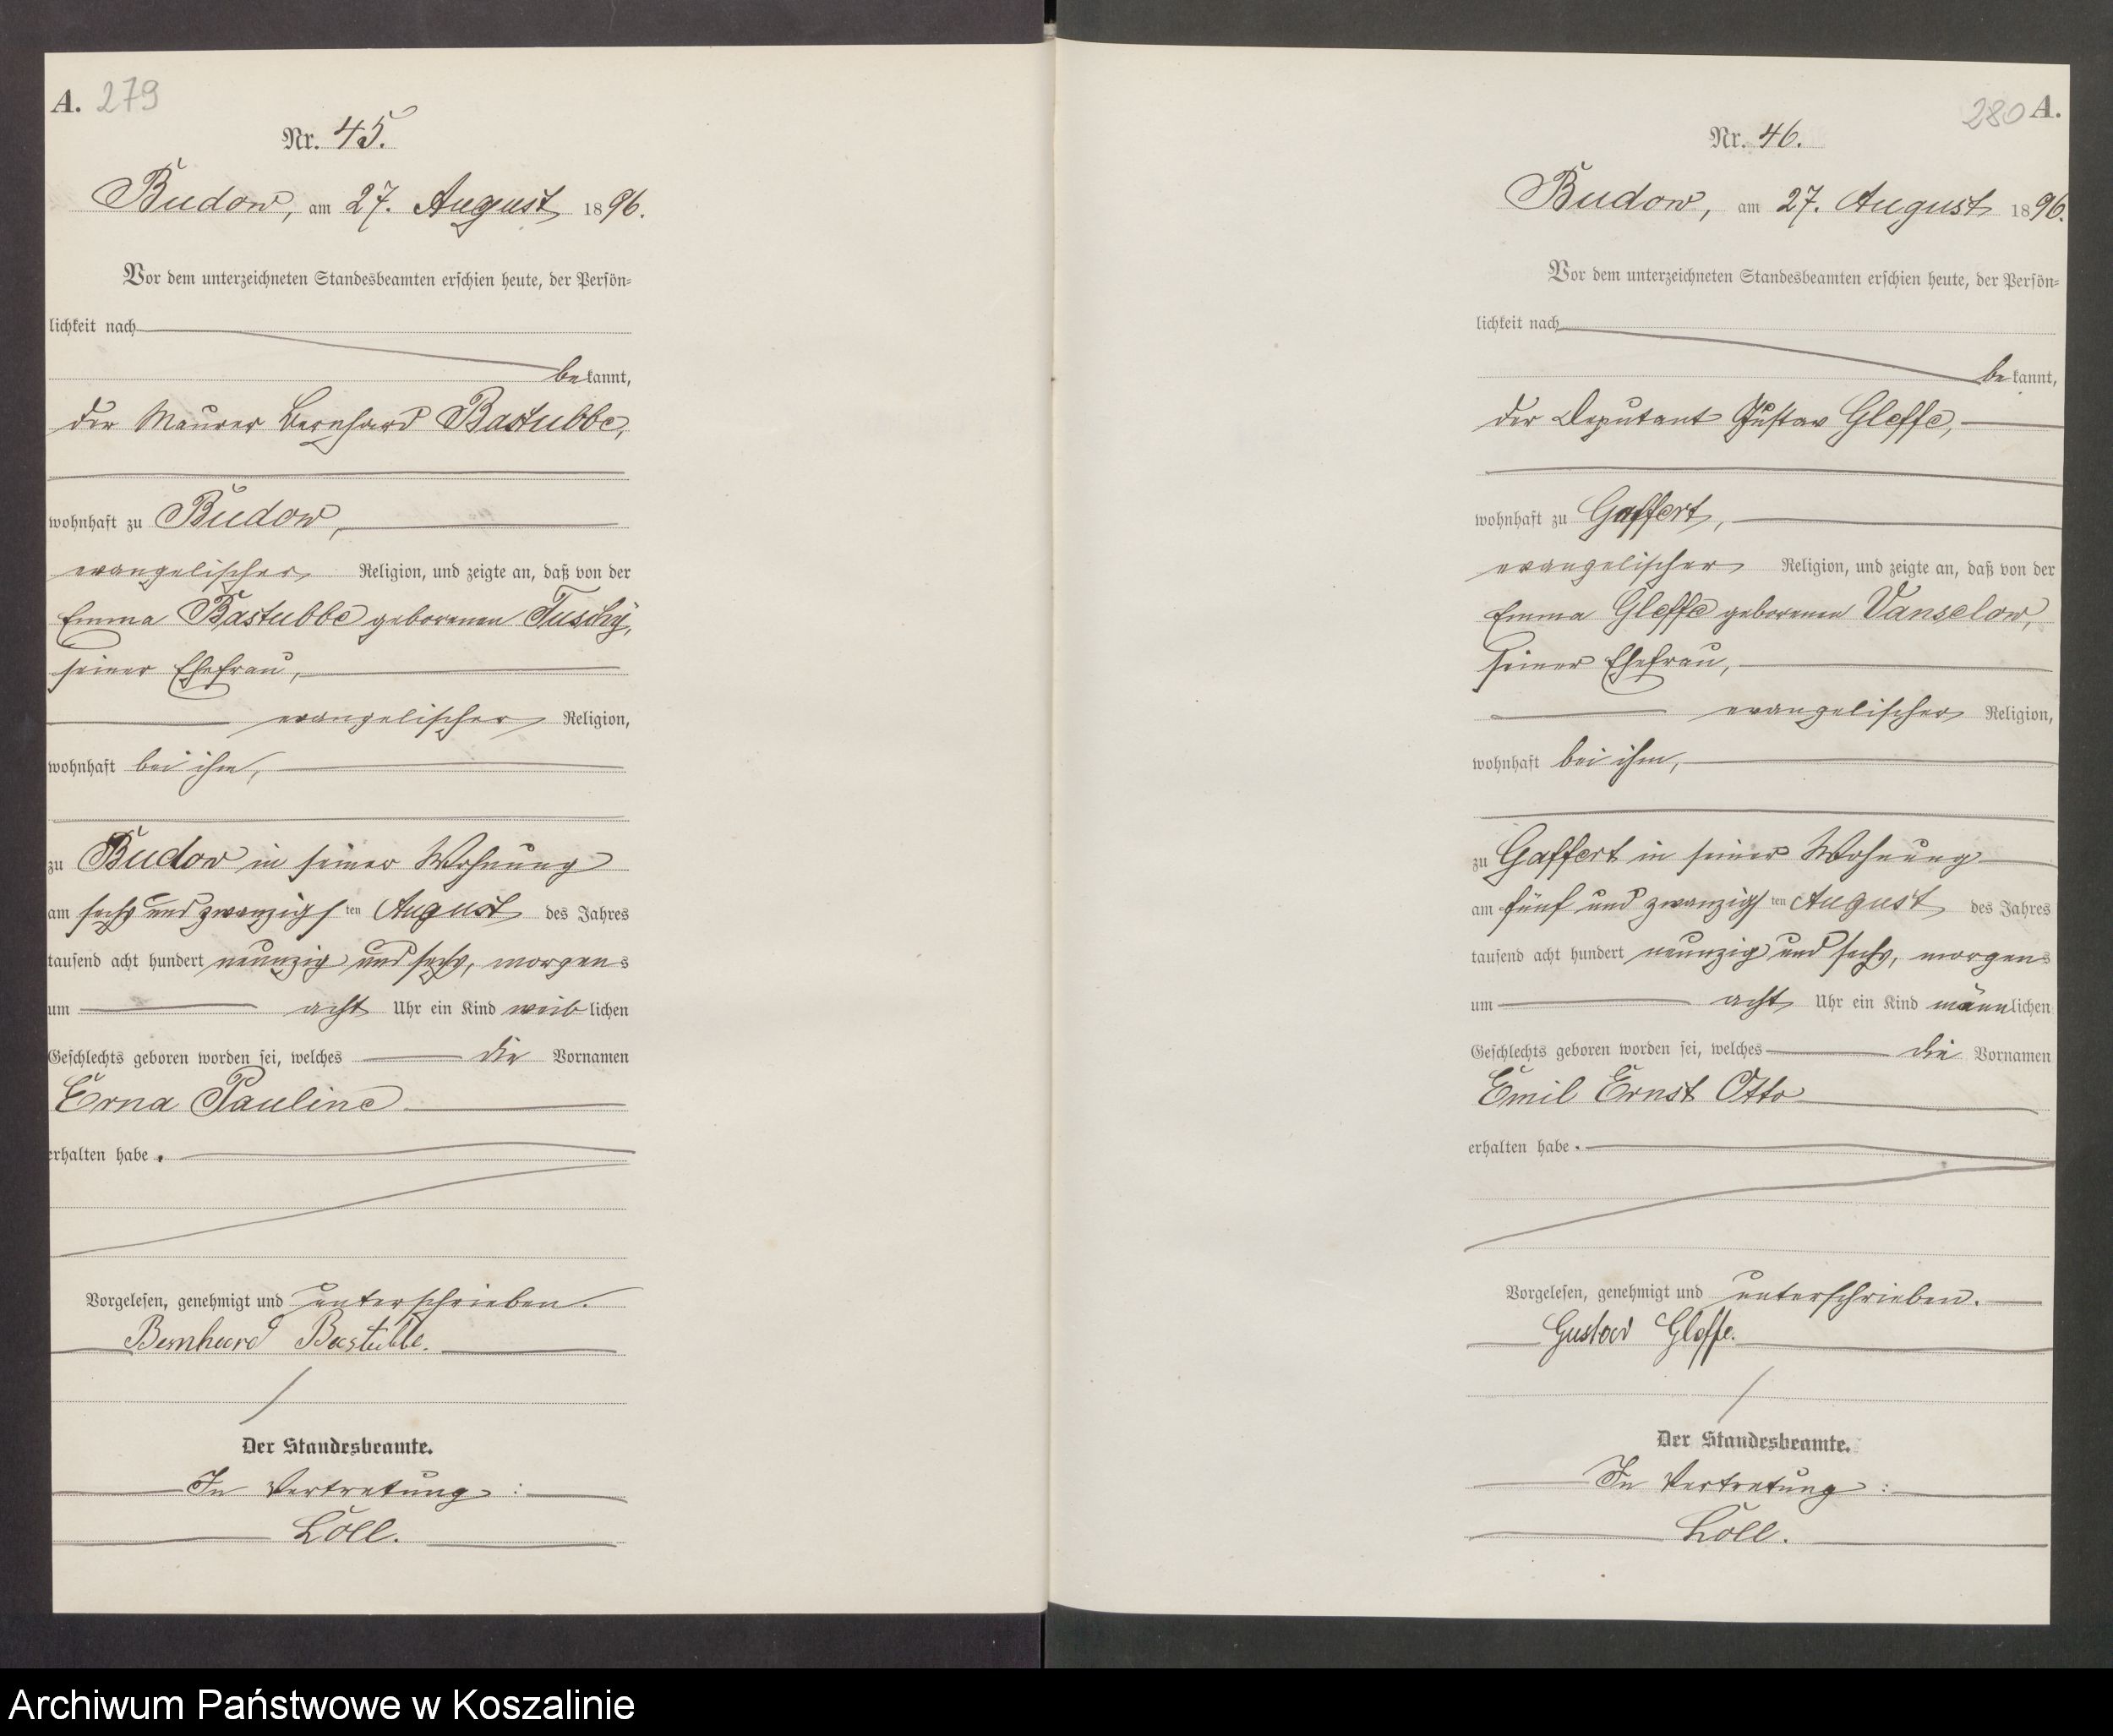 A. 279
Nr. 45.
Budow, am 27. August 1896.
Vor dem unterzeichneten Standesbeamten erschien heute, der Persön-
lichkeit nach
bekannt,
der Maurer Bernhard Bastubbe,
wohnhaft zu Budow,
evangelischer Religion, und zeigte an, daß von der
Emma Bastubbe geborenen Tuschy,
seiner Ehefrau,
evangelischer Religion,
wohnhaft bei ihm,
zu Budow in seiner Wohnung
am sechs und zwanzigsten August des Jahres
tausend acht hundert neunzig und sechs, morgens
um acht Uhr ein Kind weiblichen
Geschlechts geboren worden sei, welches die Vornamen
Erna Pauline
erhalten habe.
Vorgelesen, genehmigt und unterschrieben.
Bernhard Bastubbe.
Der Standesbeamte.
In Vertretung:
Löll.
280 A.
Nr. 46.
Budow, am 27. August 1896.
Vor dem unterzeichneten Standesbeamten erschien heute, der Persön-
lichkeit nach
bekannt,
der Deputant Gustav Gleffe,
wohnhaft zu Gaffert,
evangelischer Religion, und zeigte an, daß von der
Emma Gleffe geborenen Vanselow,
seiner Ehefrau,
evangelischer Religion,
wohnhaft bei ihm,
zu Gaffert in seiner Wohnung
am fünf und zwanzigsten August des Jahres
tausend acht hundert neunzig und sechs, morgens
um acht Uhr ein Kind männlichen
Geschlechts geboren worden sei, welches die Vornamen
Emil Ernst Otto
erhalten habe.
Vorgelesen, genehmigt und unterschrieben.
Gustav Gleffe.
Der Standesbeamte.
In Vertretung:
Löll.
Archiwum Państwowe w Koszalinie